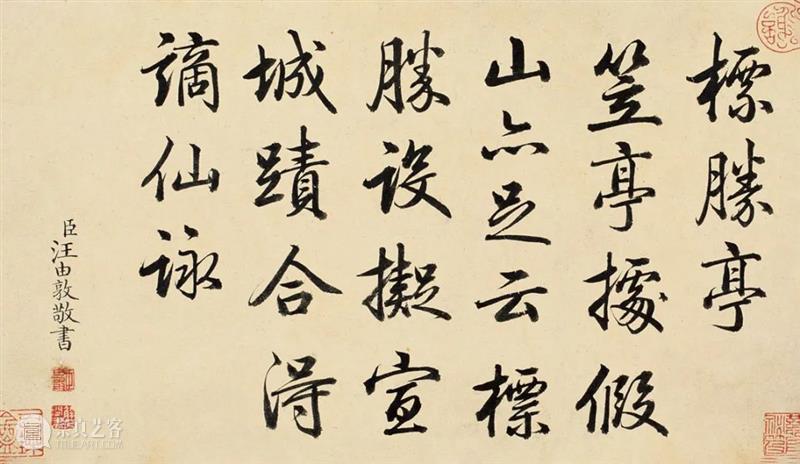 標勝亭
笠亭據假
山亦足云標
勝設擬宣
城蹟合得
謫仙詠
臣汪由敦敬書
崇真艺客